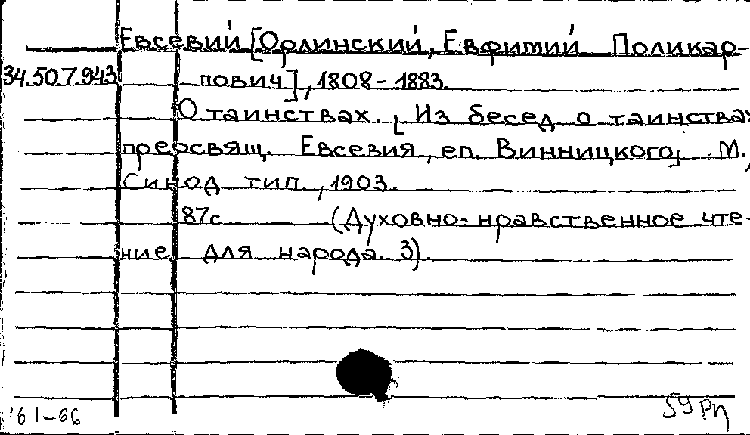 Евсевий [Орлинский, Евфимий Поликар-
34.50.7.943 пович], 1808-1883.
О таинствах. [Из бесед о таинствах
преосвящ. Евсевия, еп. Винницкого]. М.,
Синод. тип., 1903.
87с. (Духовно-нравственное чте-
ние для народа. 3).
'61-66 59